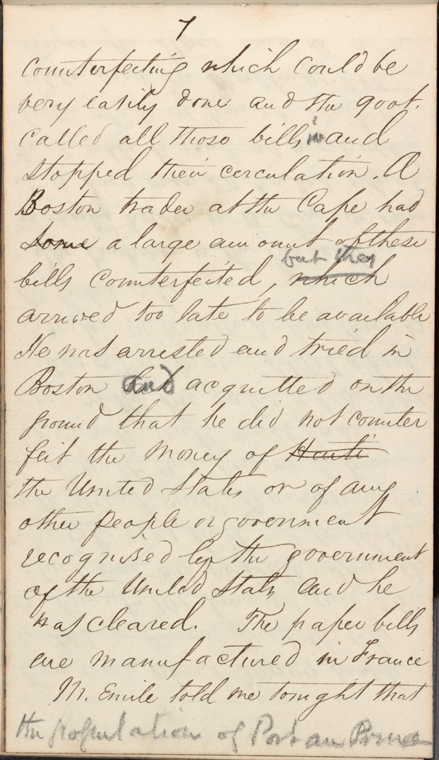 7
counterfeiting which could be
very easily done and the govt.
called all those bills in and
stopped their cerculation. A
Boston trader at the Cape had
some a large amount of these
but they
bills counterfeited, which
arrived too late to be available
He was arrested and tried in
Boston and acquitted on the
ground that he did not counter
feit the money of Haiti
the United States or of any
other people or government
recognised by the government
of the United States and he
was cleared. The paper bills
are manufactured in France
M. Emile told me tonight that
the population of Port au Prince